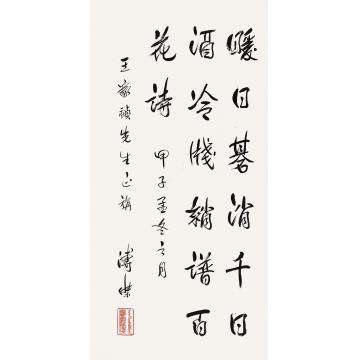 暖日碁消千日
酒冷牋譜百
花詩 甲子孟冬之月
王家禎先生正 溥傑